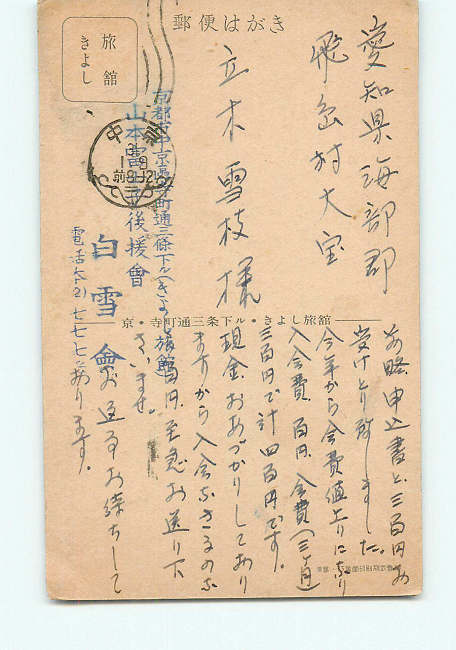 郵便はがき
旅館
きよし
愛知県海部郡
飛島村大宝
立木雪枝様
京都市中京區寺町通三條下ル(きよし旅館)
後援會
白雪會
電話本(2)七七七七
京・寺町通三条下ル・きよし旅館
前略申込書と三百円お
受けとり致しました。
今年から会費値上りになり
入会費 百円 会費(三ヶ月)
三百円で計四百円です。
現金おあづかりしてあり
ますから入会なさるのな
百円至急お送り下
さいませ。
お返事お待ちして
おります。